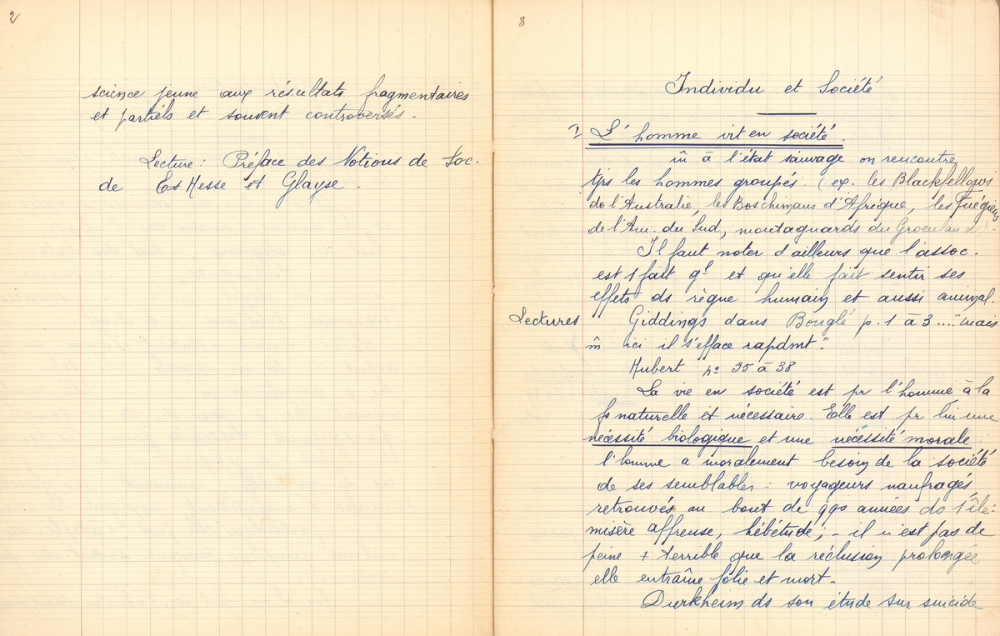 2
science jeune aux résultats fragmentaires
et partiels et souvent controversés.
Lecture : Préface des Notions de Soc.
de Es Hesse et Glayse.
3
Individu et Société
I L'homme vit en société.
m̂ à l'état sauvage on rencontre
tjrs les hommes groupés. (ex. les Blackfellows
de l'Australie, les Boschimans d'Afrique, les Fuégiens
de l'Am. du Sud, montagnards du Groenland). -
Il faut noter d'ailleurs que l'assoc.
est 1 fait gal et qu'elle fait sentir ses
effets ds règne humain et aussi animal.
Lectures Giddings dans Bouglé p. 1 à 3 .... "mais
m̂ ici il s'efface rapdmt".
Hubert p. 35 à 38
La vie en société est pr l'homme à la
fs naturelle et nécessaire. Elle est pr lui une
nécessité biologique et une nécessité morale.
l'homme a moralement besoin de la société
de ses semblables : voyageurs naufragés
retrouvés au bout de qqs années ds 1 île :
misère affreuse, hébétude, - il n'est pas de
peine + terrible que la réclusion prolongée
elle entraîne folie et mort.
Durkheim ds son étude sur suicide